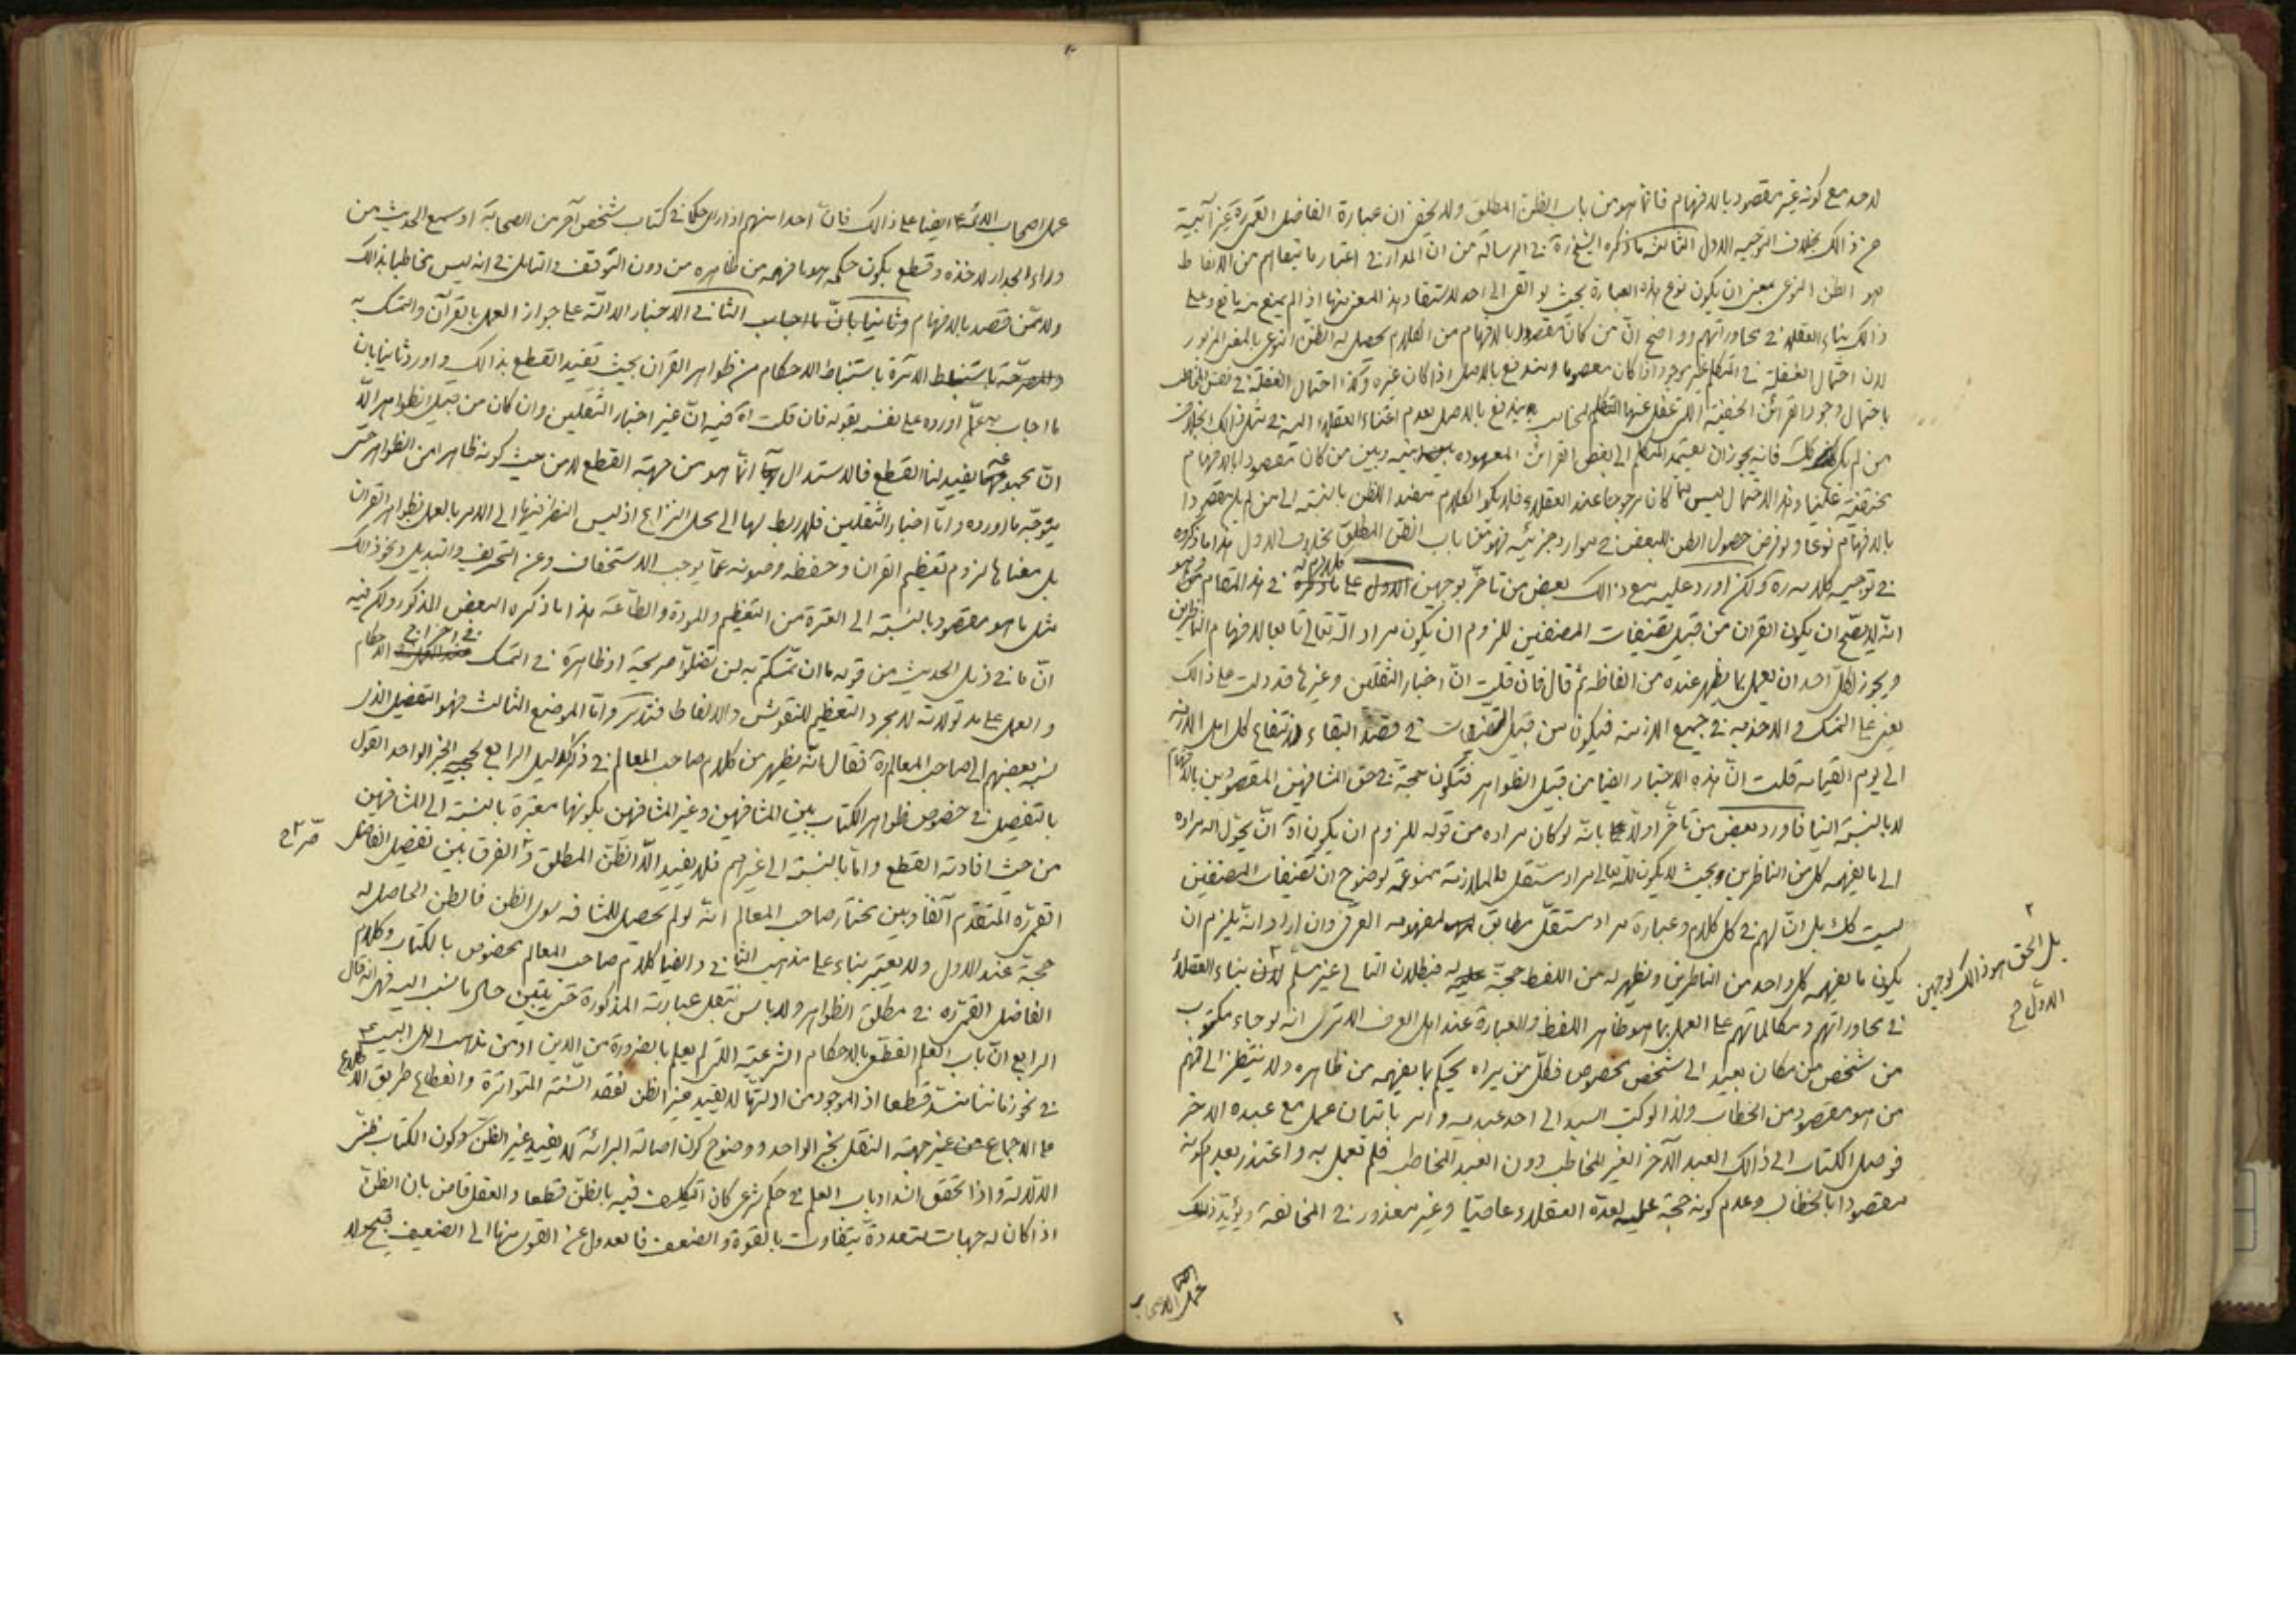 لاحد مع كونه غير مقصود بالافهام فانما هو من باب الظن المطلق ولا يخفى ان عبارة الفاضل القمى ره غير آبية
ح ذالك بخلاف التوجيه الاول الثالث ما ذكره الشيخ ره فى الرسالة من ان المدار فى اعتبار ما يتفاهم من الالفاظ
هو الظن النوعى بمعنى ان يكون نوع هذه العبارة بحيث لو القى الى احد لاستفاد هذا المعنى منها اذا لم يمنع منه مانع وعلى
ذالك بناء العقلاء فى محاوراتهم وواضح ان من كان مقصودا بالافهام من الكلام يحصل له الظن النوعى بالمعنى المزبور
لان احتمال الغفلة فى المتكلم غير موجود اذا كان معصوما ومندفع بالاصل اذا كان غيره وكذا احتمال الغفلة فى نفس المخاطب
باحتمال وجود القرائن الخفية التى غفل عنها المخاطب يندفع بالاصل لعدم اعتناء العقلاء اليه فى مثل ذالك بخلاف
من لم يكن كك فانه يجوز ان يعتمد المتكلم الى بعض القرائن المعهوده بينه وبين من كان مقصودا بالافهام
مختفية علينا وهذا الاحتمال ليس مما كان مرجوحا عند العقلاء فلا يكون الكلام مفيد الظن بالنسبة الى من لم يكن مقصودا
بالافهام نوعا ولو فرض حصول الظن للبعض فى موارد جزئية فهو من باب الظن المطلق بخلاف الاول هذا ما ذكروه
فى توجيه كلامه ره ولكن اورد عليه مع ذالك بعض من تاخر بوجهين الاول على ما ذكره فى هذا المقام
انه لا يصح ان يكون القران من قبيل تصنيفات المصنفين للزوم ان يكون مراد الله تعالى تابعا لافهام الناظرين
ويجوز لكل احد ان يعمل بما يظهر عنده من الفاظه ثم قال فان قلت ان اخبار الثقلين وغيرها قد دلت على ذالك
يعنى على التمسك والاخذ به فى جميع الازمنة فيكون من قبيل التصنيفات فى قصد البقاء وانتفاع كل اهل الازمنة
الى يوم القيامه قلت ان هذه الاخبار ايضا من قبيل الظواهر فتكون حجة فى حق المشافهين المقصودين بالافهام
لا بالنسبة الينا فاورد بعض من تاخر اولا بانه لو كان مراده من قوله للزوم ان يكون اه ان يحول اليه مراده
الى ما يفهمه كل من الناظرين وبحيث لا يكون لله تعالى مراد مستقل فالملازمة ممنوعة لوضوح ان تصنيفات المصنفين
ليست كك بل ان لهم فى كل كلام وعبارة مراد مستقل مطابق لمفهومه العرفى وان اراد انه يلزم ان
يكون ما يفهمه كل واحد من الناظرين ويظهر له من اللفظ حجة له فبطلان التالى غير مسلم لان بناء العقلاء
فى محاوراتهم ومكالماتهم على العمل بما هو ظاهر اللفظ والعبارة عند اهل العرف الا ترى انه لو جاء مكتوب
من شخص من مكان بعيد الى شخص مخصوص فكل من يراه يحكم بما يفهمه من ظاهره ولا ينتظر الى فهم
من هو مقصود من الخطاب ولذا لو كتب السيد الى احد عبديه وامر باتيان عمل مع عبده الاخر
فوصل الكتاب الى ذالك العبد الآخر الغير المخاطب دون العبد المخاطب فلم يعمل به واعتذر بعدم كونه
مقصودا بالخطاب وعدم كونه حجة عليه لعده العقلاء عاصيا وغير معذور فى المخالفة ويؤيد ذلك
بل الحق هو ذالك لوجهين
الاول ح
عمل اصحاب
عمل اصحاب الائمة ع ايضا على ذالك فان احدا منهم اذا راى حكما فى كتاب شخص آخر من الصحابة او سمع الحديث من
وراء الجدار لاخذه وقطع بكون حكمه هو ما فهمه من ظاهره من دون التوقف والتامل فى انه ليس مخاطبا بذالك
ولا ممن قصد بالافهام وثانيا بان ما اجاب الثانى الاخبار الدالة على جواز العمل بالقرآن والتمسك به
باستنباط الاحكام من ظواهر القران بحيث تفيد القطع بذالك واورد ثانيا بان
ما اجاب به عما اورده على نفسه بقوله فان قلت اه فيه ان غير اخبار الثقلين وان كان من قبيل الظواهر الا
ان مجموعها يفيد لنا القطع فالاستدلال بها انما هو من جهة القطع لا من حيث كونه ظاهرا من الظواهر حتى
يتوجه ما اورده واما اخبار الثقلين فلا ربط لها الى محل النزاع اذ ليس النظر فيها الى الامر بالعمل بظواهر القران
بل معناها لزوم تعظيم القران وحفظه وصونه عما يوجب الاستخفاف وعن التحريف والتبديل ونحو ذالك
مثل ما هو مقصود بالنسبة الى العترة من التعظيم والمودة والطاعة هذا ما ذكره البعض المذكور ولكن فيه
ان ما فى ذيل الحديث من قوله ما ان تمسكتم به لن تضلوا صريحة او ظاهرة فى التمسك فى اخراج الاحكام
والعمل على مدلولاته لا مجرد التعظيم للنقوش والالفاظ فتدبر واما الموضع الثالث فهو التفصيل الذى
نسبه بعضهم الى صاحب المعالم ره فقال انه يظهر من كلام صاحب المعالم فى ذكر الدليل الرابع لحجية الخبر الواحد القول
بالتفصيل فى خصوص ظواهر الكتاب بين المشافهين وغير المشافهين بكونها معتبرة بالنسبة الى المشافهين
من حيث افادته القطع واما بالنسبة الى غيرهم فلا يفيد الا الظن المطلق والفرق بين تفصيل الفاضل
القمى ره المتقدم آنفا وبين مختار صاحب المعالم انه لو لم يحصل للمشافه سوى الظن فالظن الحاصل له
حجة عند الاول ولا يعتبر بناء على مذهب الثانى وايضا كلام صاحب المعالم مخصوص بالكتاب وكلام
الفاضل القمى ره فى مطلق الظواهر ولا باس بنقل عبارته المذكورة حتى يتبين حال ما نسب اليه فهو انه قال
الرابع ان باب العلم القطعى بالاحكام الشرعية التى لم يعلم بالضرورة من الدين او من مذهب اهل البيت ع
فى نحو زماننا منسد قطعا اذ الموجود من ادلتها لا يفيد غير الظن لفقد السنة المتواترة وانقطاع طريق الاطلاع
على الاجماع من غير جهة النقل بخبر الواحد ووضوح كون اصالة البرائة لا يفيد غير الظن وكون الكتاب ظنى
الدلالة واذا تحقق انسداد باب العلم فى حكم شرعى كان التكليف فيه بالظن قطعا والعقل قاض بان الظن
اذا كان له جهات متعددة يتفاوت بالقوة والضعف فالعدول عن القوى منها الى الضعيف قبيح ولا